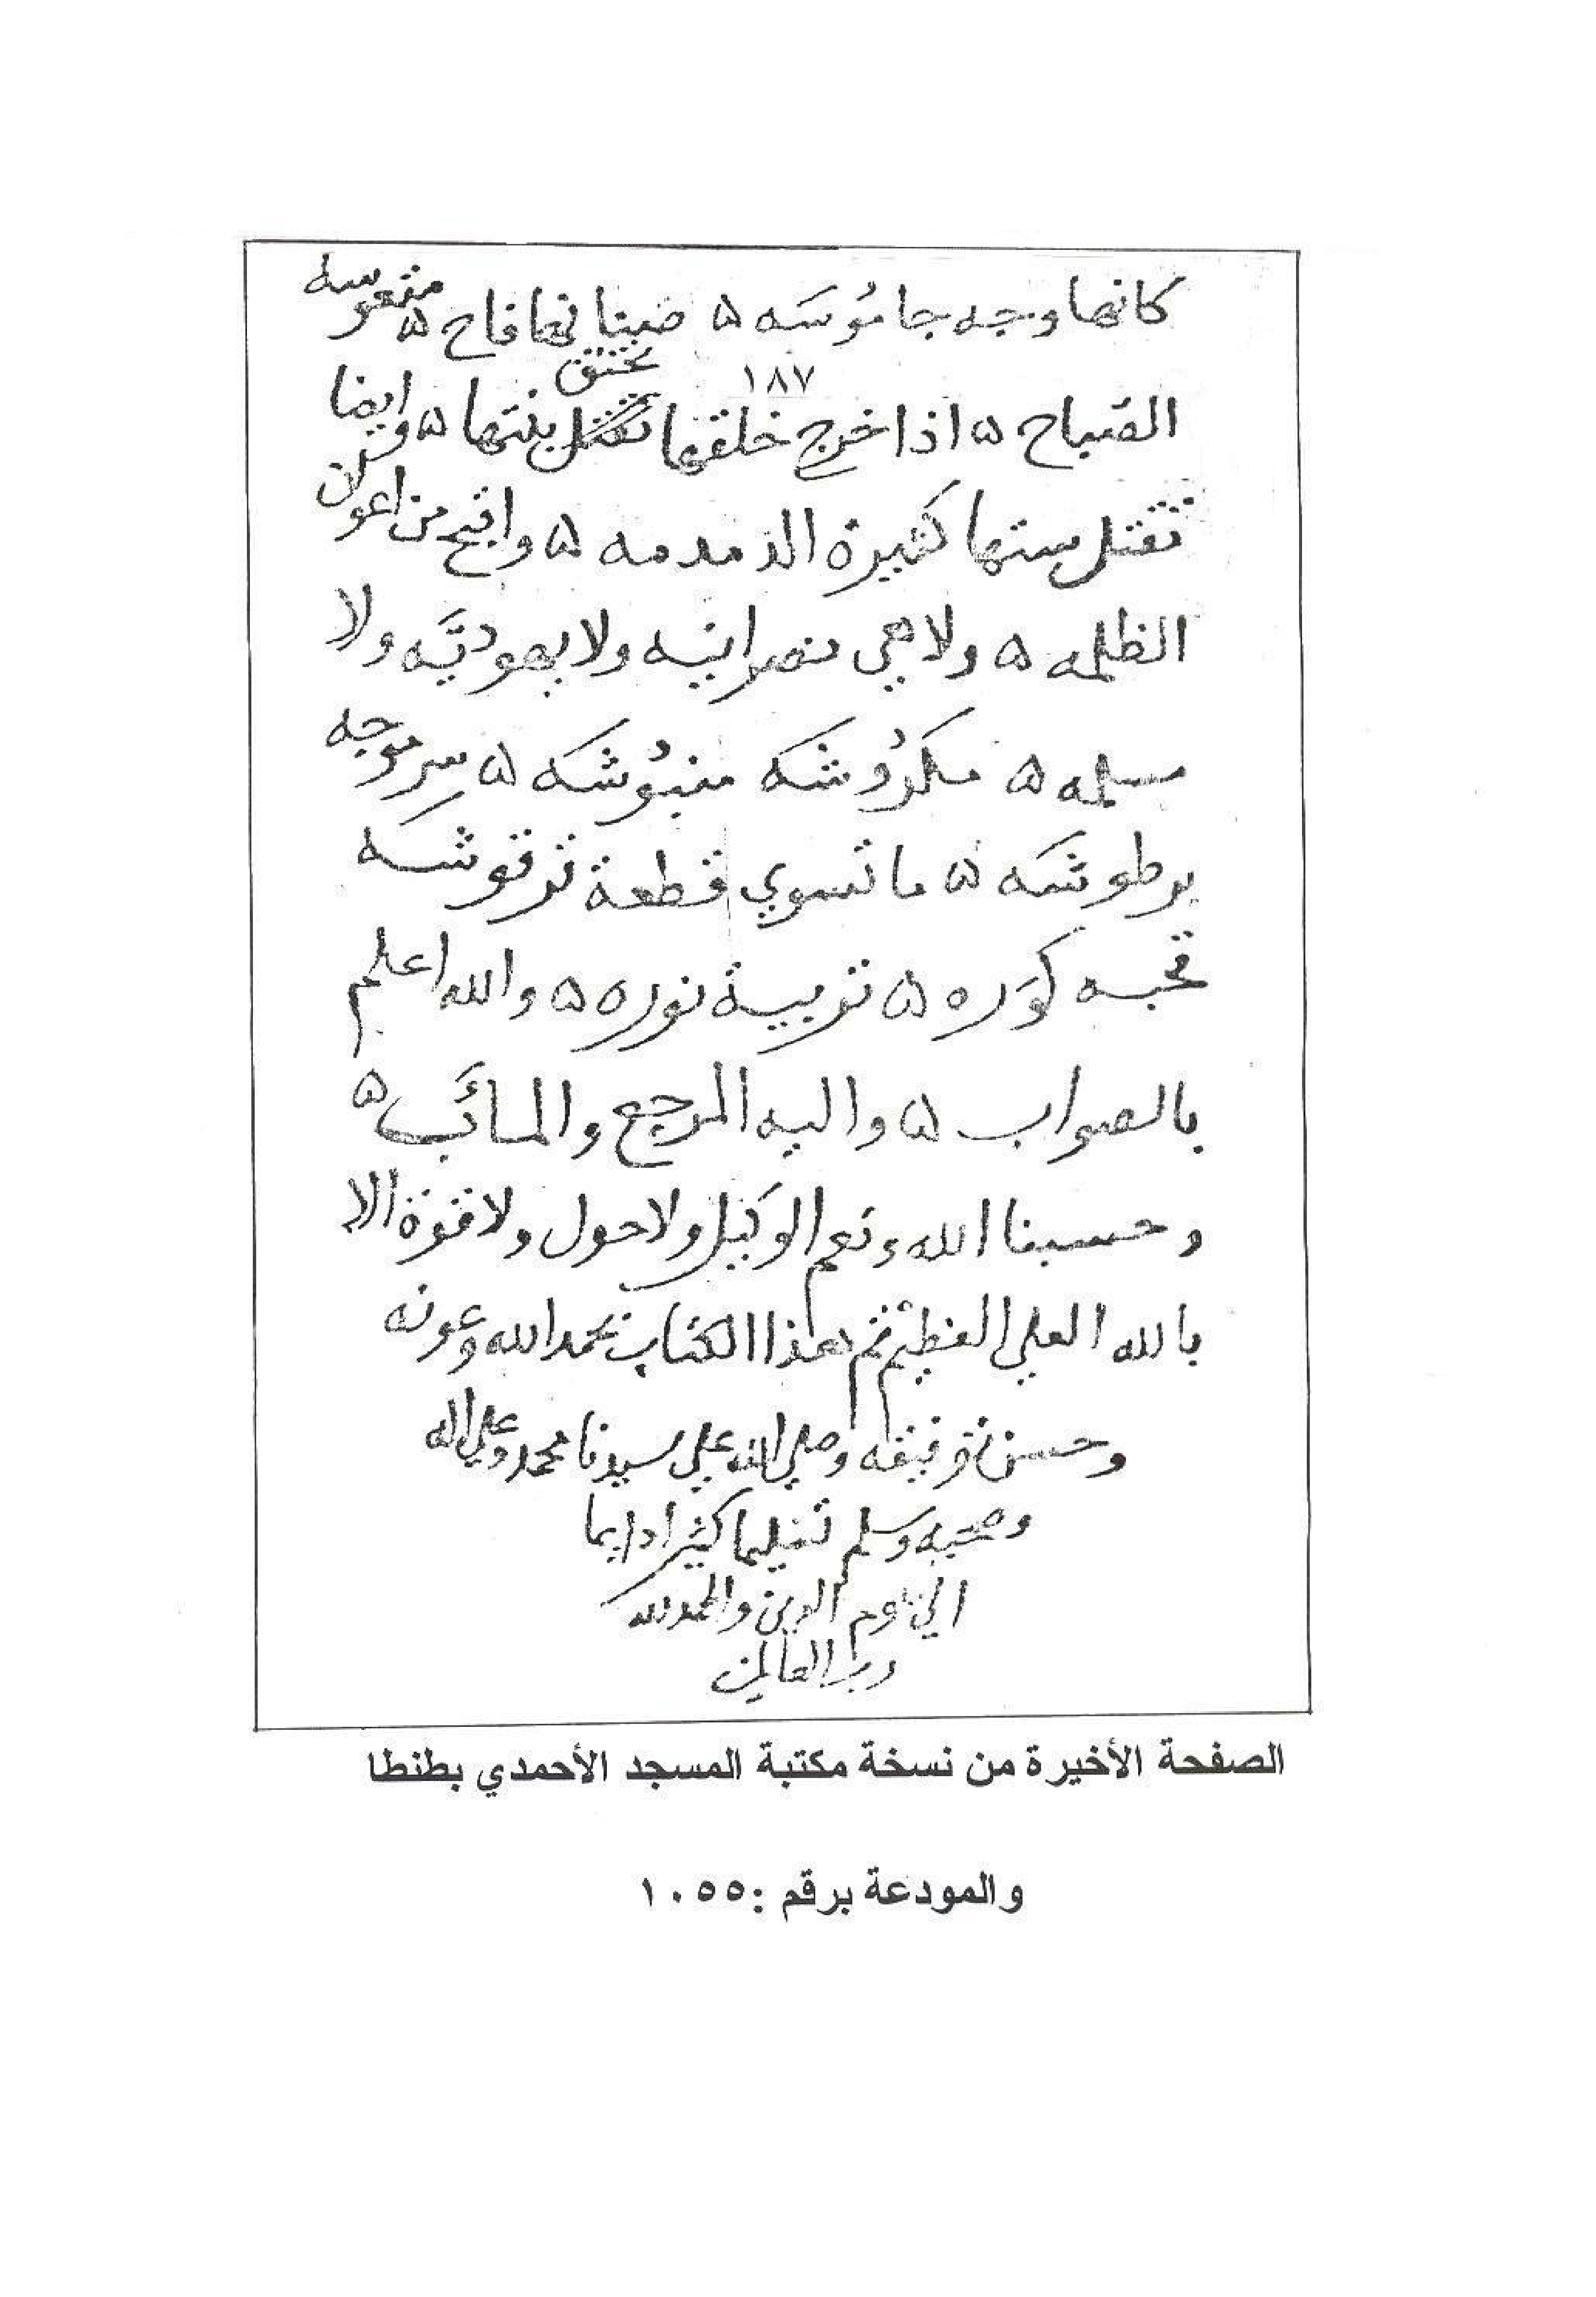 كانها وجه جاموُسَه ۵ صبنانها فاح ۵ متعوسه
١٨٧
يختنق
القباح ۵ اذا خرج خلقها تقتل بنتها ۵ وايضا
تقتل ستها كثيرة الدمدمه ۵ واقبح من اعوان
الظلمه ۵ ولا هي نصرانيه ولا يهوديَّه ولا
مسلمه ۵ مكردُوشه منبوُشه ۵ سرموجه
برطوشه ۵ ما تسوي قطعة ترقوشه
قحبه كوَره ۵ تربية نوره ۵ والله اعلم
بالصواب ۵ واليه المرجع والمائَب ۵
وحسبنا الله ونعم الوكيل ولا حول ولا قوة الا
بالله العلي العظيم تم هذا الكتاب بحمد الله وعونه
وحسن توفيقه وصلي الله علي سيدنا محمد وعلي اله
وصحبه وسلم تسليما كثيرا دايما
الي يوم الدين والحمد لله
رب العالمين
الصفحة الأخيرة من نسخة مكتبة المسجد الأحمدي بطنطا
والمودعة برقم :١٠٥٥